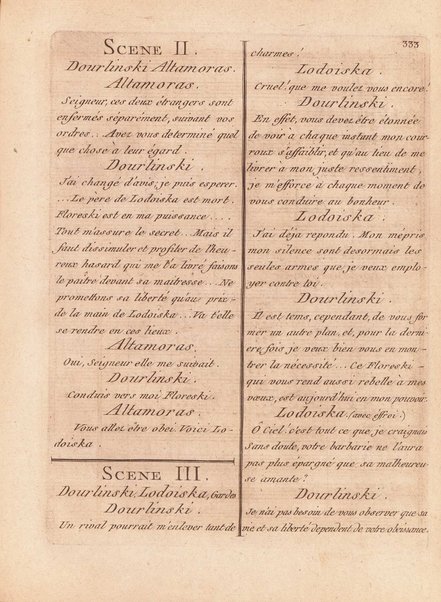 333
SCENE II.
Dourlinski Altamoras.
Altamoras.
Seigneur, ces deux étrangers sont
enfermés séparément, suivant vos
ordres.. Avez vous determiné quel
que chose à leur égard.
Dourlinski.
J'ai changé d'avis; je puis esperer.
... Le père de Lodoiska est mort.
Floreski est en ma puiseance....
Tout m'assure le secret... Mais il
faut dissimuler et profiter de l'heu-
reux hasard qui me l'a livré faisons
le paitre devant sa maitresse... Ne
promettons sa liberté qu'au prix-
de la main de Lodoiska... Va t'elle
se rendre en ces lieux.
Altamoras.
Oui, Seigneur elle me suivait.
Dourlinski.
Conduis vers moi Floreski.
Altamoras.
Vous allez être obéi. Voici Lo-
doiska.
SCENE III.
Dourlinski, Lodoiska, Gardes
Dourlinski.
Un rival pourrait m'enlever tant de
charmes!
Lodoiska.
Cruel! que me voulez vous encore.
Dourlinski.
En effet, vous devez être étonnée
de voir à chaque instant mon cour-
roux s'affaiblir, et qu'au lieu de me
livrer à mon juste ressentiment,
je m'efforce à chaque moment de
vous conduire au bonheur.
Lodoiska.
J'ai déja repondu. Mon mepris
mon silence sont desormais les
seules armes que je veux emplo-
yer contre toi.
Dourlinski.
Il est tems, cependant, de vous for
mer un autre plan, et, pour la derni-
ère fois, je veux bien vous en mon-
trer la nécessité... Ce Floreski-
qui vous rend aussi rebelle à mes
vœux, est aujourd'hui en mon pouvoir.
Lodoiska. (avec effroi.)
Ô Ciel! c'est tout ce que, je craignais
Sans doute, votre barbarie ne l'aura
pas plus épargné que sa malheureu-
se amante?
Dourlinski.
Je n'ai pas besoin de vous observer que sa
vie et sa liberté dependent de votre obeissance.